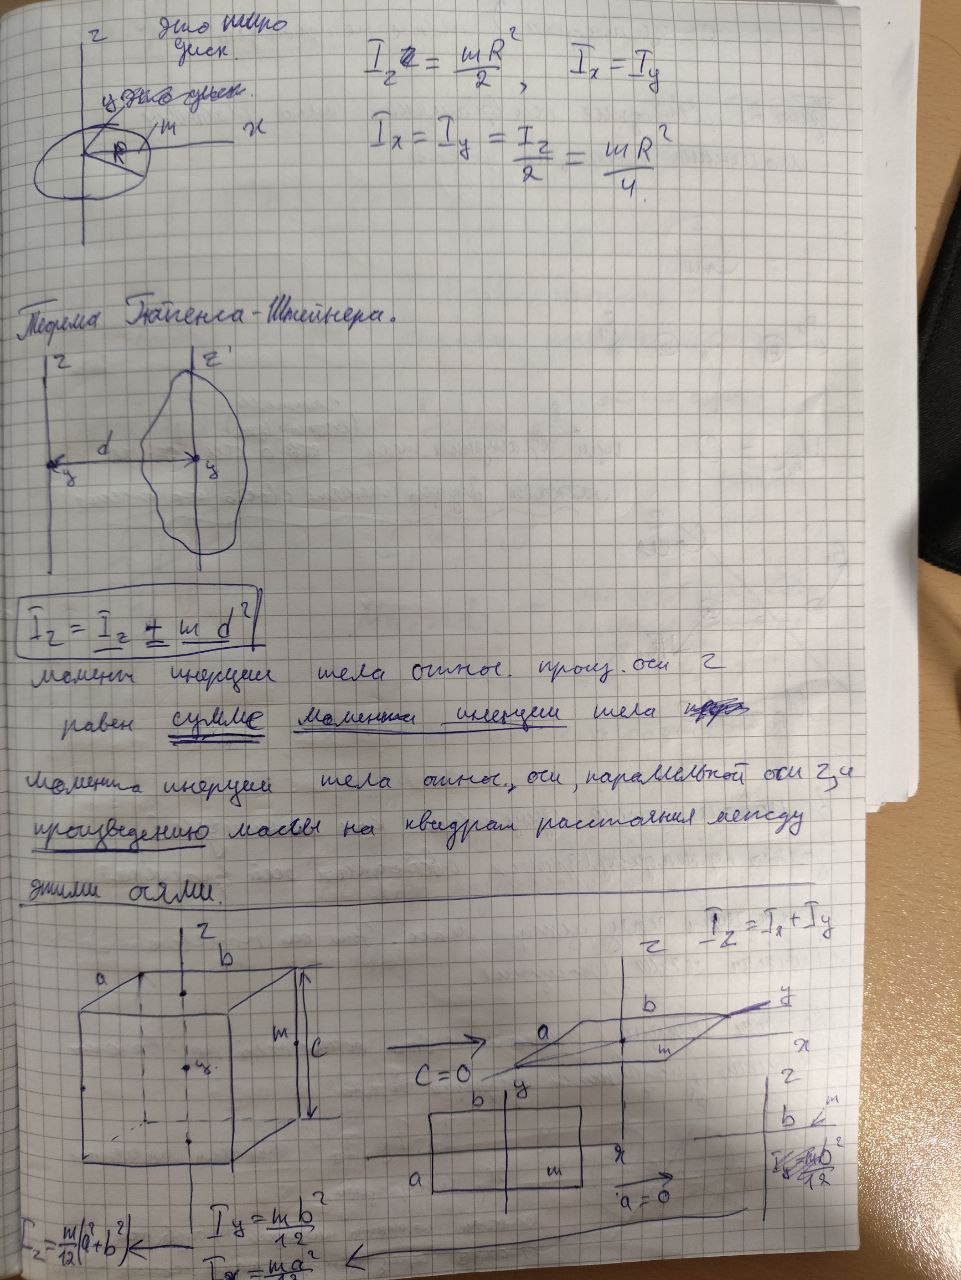 z
это тиро
диск.
I_z = mR²/2, I_x = I_y
y
m
x
R
I_x = I_y = I_z/2 = mR²/4.
Теорема Гюйгенса-Штейнера.
z z'
d
ц ц
I_z = I_z + m d²
момент инерции тела относ. произ. оси z
равен сумме момента инерции тела
момента инерции тела относ. оси, параллельной оси z, и
произведению массы на квадрат расстояния между
этими осями.
I_z = I_x + I_y
z
a b
m c
ц.
c = 0
z
a b
y
m x
y
b
a m x
a = 0
z
b m
I_z = m/12 (a² + b²)
I_y = mb²/12
I_x = ma²/12